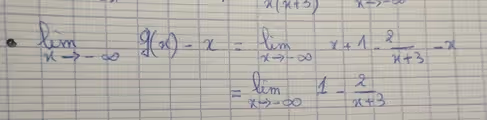 x(x+3) x→-∞
• lim x→-∞ g(x) - x = lim x→-∞ x + 1 - 2/(x+3) - x
= lim x→-∞ 1 - 2/(x+3)